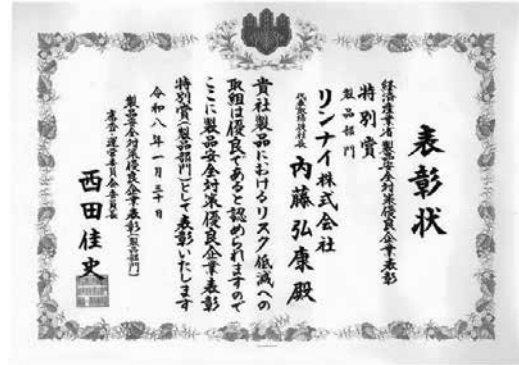 表彰状
経済産業省 製品安全対策優良企業表彰
特別賞
製品部門
リンナイ株式会社
代表取締役社長 内藤弘康殿
貴社製品におけるリスク低減への
取組は優良であると認められますので
ここに製品安全対策優良企業表彰
特別賞(製品部門)として表彰いたします
令和八年一月三十日
製品安全対策優良企業表彰(製品部門)
審査・運営委員会委員長
西田佳史